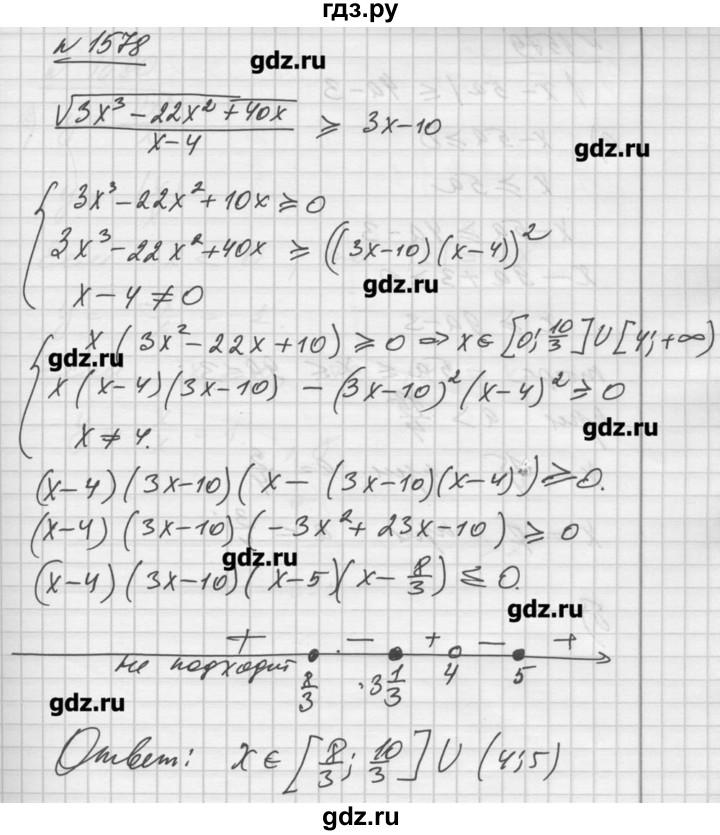 гдз.ру
№ 1578
gdz.ru
√(3x³ − 22x² + 40x) / (x−4) ≥ 3x−10
gdz.ru
{ 3x³ − 22x² + 10x ≥ 0
3x³ − 22x² + 40x ≥ ((3x−10)(x−4))²
gdz.ru
x − 4 ≠ 0
{ x(3x² − 22x + 10) ≥ 0 ⇒ x ∈ [0; 10/3] ∪ [4; +∞)
gdz.ru
x(x−4)(3x−10) − (3x−10)²(x−4)² ≥ 0
x ≠ 4.
gdz.ru
(x−4)(3x−10)(x − (3x−10)(x−4)) ≥ 0.
(x−4)(3x−10)(−3x² + 23x − 10) ≥ 0
gdz.ru
(x−4)(3x−10)(x−5)(x − 8/3) ≤ 0.
gdz.ru
+ − + − +
не подходит 8/3 3 1/3 4 5
gdz.ru
Ответ: x ∈ [8/3; 10/3] ∪ (4; 5)
gdz.ru